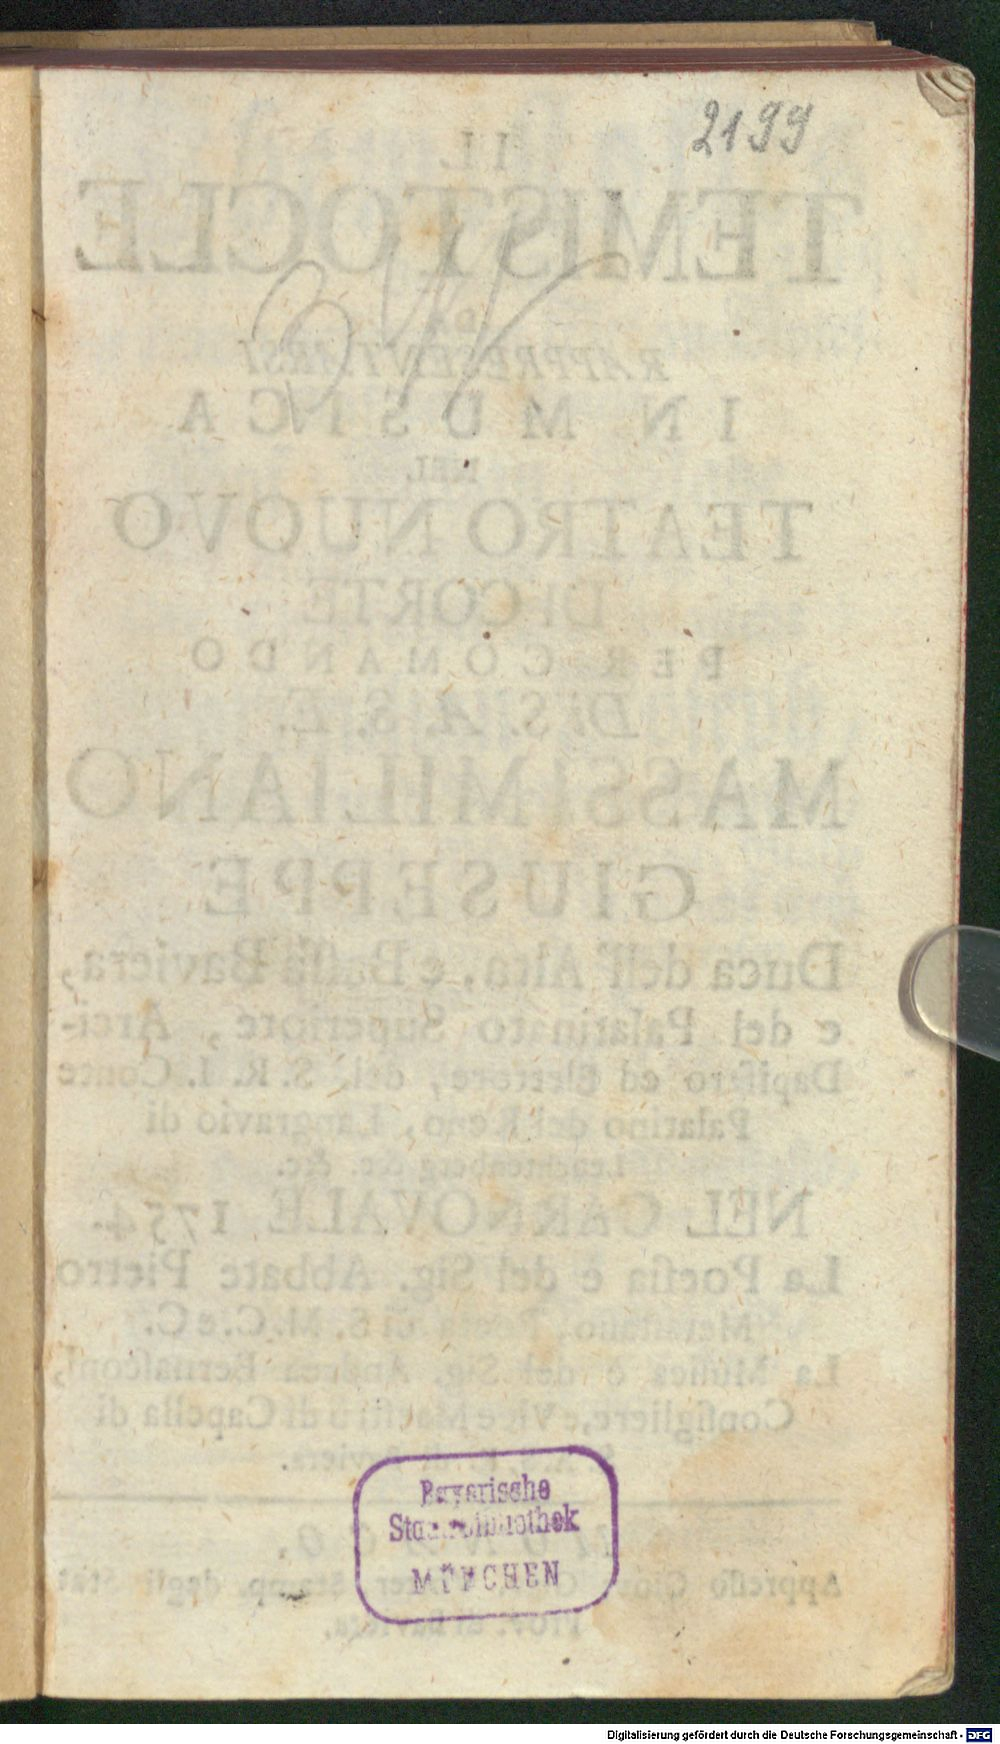 2199
IL
TEMISTOCLE
DA
RAPPRESENTARSI
IN MUSICA
NEL
TEATRO NUOVO
DI CORTE
PER COMANDO
Di S. A. S. E.
MASSIMILIANO
GIUSEPPE
Duca dell' Alta, e Bassa Baviera,
e del Palatinato Superiore, Arci-
Dapifero ed Elettore, del S. R. I. Conte
Palatino del Reno, Langravio di
Leuchtenberg &c. &c.
NEL CARNOVALE 1754.
La Poesia è del Sig. Abbate Pietro
Metastasio, Poeta di S. M. C. e C.
La Musica è del Sig. Andrea Bernasconi,
Consigliere, e Vice Maestro di Capella di
Baviera.
Bayerische
Staatsbibliothek
MÜNCHEN
Appresso
Stamp. degli Stati
Prov. di Baviera.
Digitalisierung gefördert durch die Deutsche Forschungsgemeinschaft - DFG